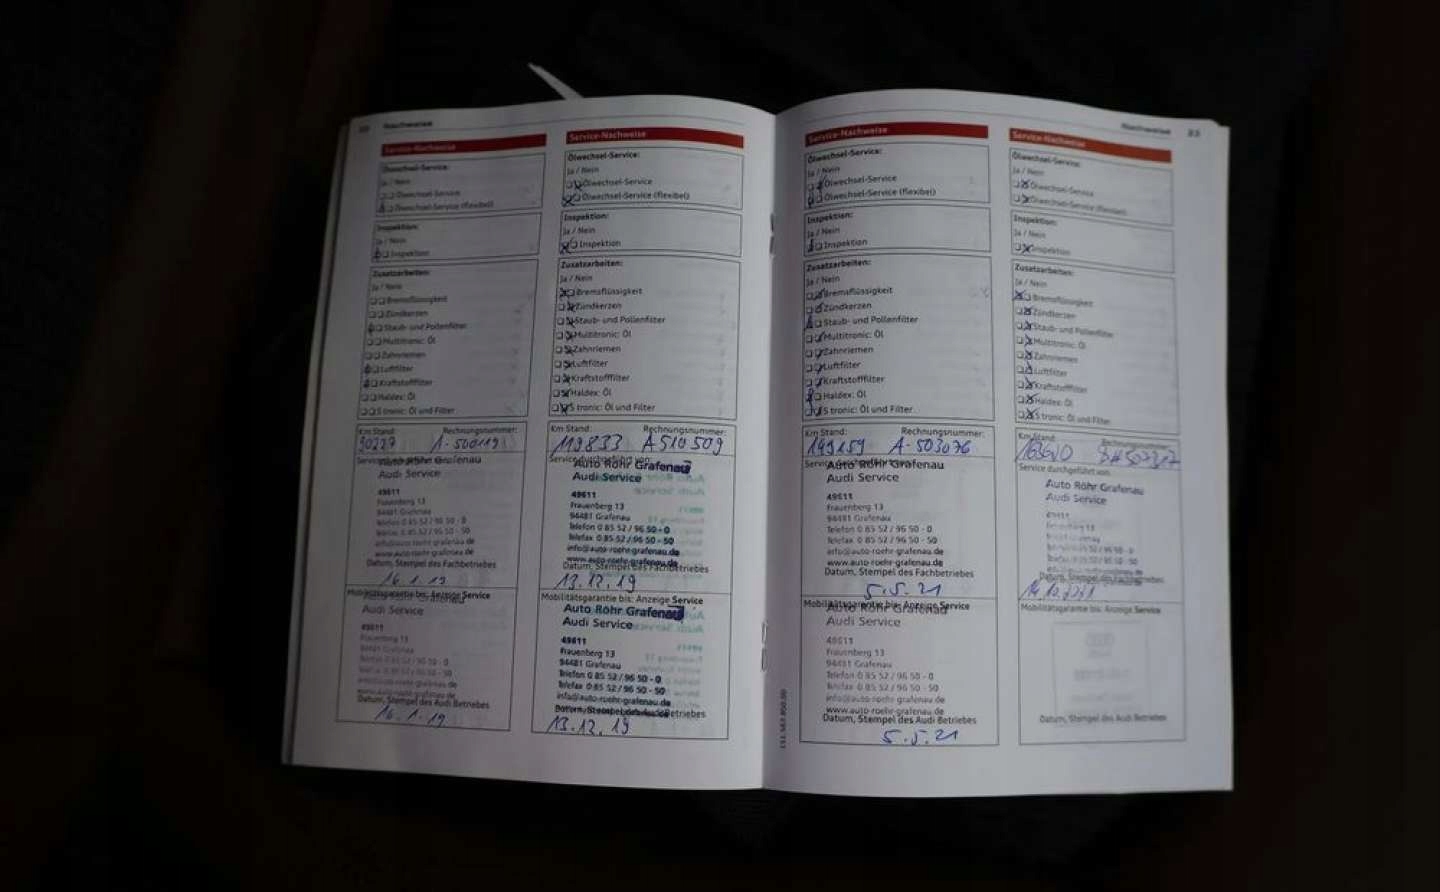 Nachweise
Service-Nachweis
Ölwechsel-Service:
Ja / Nein
Ölwechsel-Service
Ölwechsel-Service (flexibel)
Inspektion:
Ja / Nein
Inspektion
Zusatzarbeiten:
Ja / Nein
Bremsflüssigkeit
Zündkerzen
Staub- und Pollenfilter
Multitronic: Öl
Zahnriemen
Luftfilter
Kraftstofffilter
Haldex: Öl
S tronic: Öl und Filter
Km Stand: Rechnungsnummer:
30227 A-500119
Service durchgeführt von:
Auto Röhr Grafenau
Audi Service
49611
Frauenberg 13
94481 Grafenau
Telefon 0 85 52 / 96 50 - 0
Telefax 0 85 52 / 96 50 - 50
info@auto-roehr-grafenau.de
www.auto-roehr-grafenau.de
Datum, Stempel des Fachbetriebes
16.1.19
Mobilitätsgarantie bis: Anzeige Service
Auto Röhr Grafenau
Audi Service
49611
Frauenberg 13
94481 Grafenau
Telefon 0 85 52 / 96 50 - 0
Telefax 0 85 52 / 96 50 - 50
info@auto-roehr-grafenau.de
www.auto-roehr-grafenau.de
Datum, Stempel des Audi Betriebes
16.1.19
Service-Nachweis
Ölwechsel-Service:
Ja / Nein
Ölwechsel-Service
Ölwechsel-Service (flexibel)
Inspektion:
Ja / Nein
Inspektion
Zusatzarbeiten:
Ja / Nein
Bremsflüssigkeit
Zündkerzen
Staub- und Pollenfilter
Multitronic: Öl
Zahnriemen
Luftfilter
Kraftstofffilter
Haldex: Öl
S tronic: Öl und Filter
Km Stand: Rechnungsnummer:
119833 A510509
Service durchgeführt von:
Auto Röhr Grafenau
Audi Service
49611
Frauenberg 13
94481 Grafenau
Telefon 0 85 52 / 96 50 - 0
Telefax 0 85 52 / 96 50 - 50
info@auto-roehr-grafenau.de
www.auto-roehr-grafenau.de
Datum, Stempel des Fachbetriebes
13.12.19
Mobilitätsgarantie bis: Anzeige Service
Auto Röhr Grafenau
Audi Service
49611
Frauenberg 13
94481 Grafenau
Telefon 0 85 52 / 96 50 - 0
Telefax 0 85 52 / 96 50 - 50
info@auto-roehr-grafenau.de
Datum, Stempel des Audi Betriebes
13.12.19
Nachweise 23
Service-Nachweise
Ölwechsel-Service:
Ja / Nein
Ölwechsel-Service
Ölwechsel-Service (flexibel)
Inspektion:
Ja / Nein
Inspektion
Zusatzarbeiten:
Ja / Nein
Bremsflüssigkeit
Zündkerzen
Staub- und Pollenfilter
Multitronic: Öl
Zahnriemen
Luftfilter
Kraftstofffilter
Haldex: Öl
S tronic: Öl und Filter
Km Stand: Rechnungsnummer:
149159 A-503076
Service durchgeführt von:
Auto Röhr Grafenau
Audi Service
49611
Frauenberg 13
94481 Grafenau
Telefon 0 85 52 / 96 50 - 0
Telefax 0 85 52 / 96 50 - 50
info@auto-roehr-grafenau.de
www.auto-roehr-grafenau.de
Datum, Stempel des Fachbetriebes
5.5.21
Mobilitätsgarantie bis: Anzeige Service
Auto Röhr Grafenau
Audi Service
49611
Frauenberg 13
94481 Grafenau
Telefon 0 85 52 / 96 50 - 0
Telefax 0 85 52 / 96 50 - 50
info@auto-roehr-grafenau.de
www.auto-roehr-grafenau.de
Datum, Stempel des Audi Betriebes
5.5.21
Service-Nachweise
Ölwechsel-Service:
Ja / Nein
Ölwechsel-Service
Ölwechsel-Service (flexibel)
Inspektion:
Ja / Nein
Inspektion
Zusatzarbeiten:
Ja / Nein
Bremsflüssigkeit
Zündkerzen
Staub- und Pollenfilter
Multitronic: Öl
Zahnriemen
Luftfilter
Kraftstofffilter
Haldex: Öl
S tronic: Öl und Filter
Km Stand: Rechnungsnummer:
Service durchgeführt von:
Auto Röhr Grafenau
Audi Service
49611
Frauenberg 13
94481 Grafenau
Datum, Stempel des Fachbetriebes
Mobilitätsgarantie bis: Anzeige Service
Datum, Stempel des Audi Betriebes